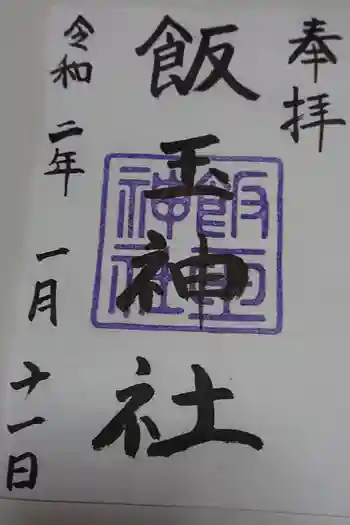 奉拝
飯玉神社
令和二年一月十一日
飯玉
神社